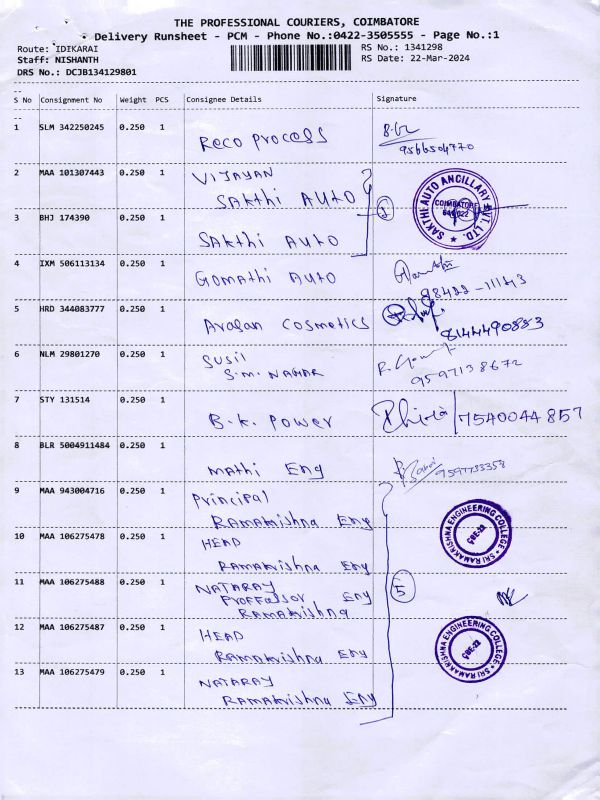 THE PROFESSIONAL COURIERS, COIMBATORE
Delivery Runsheet - PCM - Phone No.:0422-3505555 - Page No.:1
Route: IDIKARAI
RS No.: 1341298
Staff: NISHANTH
RS Date: 22-Mar-2024
DRS No.: DCJB134129801
S No Consignment No Weight PCS Consignee Details Signature
1 SLM 342250245 0.250 1 Reco Process
9566504770
2 MAA 101307443 0.250 1 VIJAYAN
SAKthi AUTO
SAKTHI AUTO ANCILLARY PVT. LTD.
COIMBATORE
641 022
3 BHJ 174390 0.250 1
SAKthi AUTO
2
4 IXM 506113134 0.250 1 Gomathi AUTO
98422-11143
5 HRD 344083777 0.250 1 Arasan Cosmetics
8144490883
6 NLM 29801270 0.250 1 SUSIL
S.M. NAGAR
9597138672
7 STY 131514 0.250 1 B.K. POWER
7540044857
8 BLR 5004911484 0.250 1 Mathi Eng
9597733358
9 MAA 943004716 0.250 1 Principal
RAMAKrishna Eng
SRI RAMAKRISHNA ENGINEERING COLLEGE
CBE-22
10 MAA 106275478 0.250 1 HEAD
RAMAKrishna Eng
11 MAA 106275488 0.250 1 NATARAY
Proffessor Eng
RAMAKrishna
5
12 MAA 106275487 0.250 1 HEAD
RAMAKrishna Eng
SRI RAMAKRISHNA ENGINEERING COLLEGE
CBE-22
13 MAA 106275479 0.250 1 NATARAY
RAMAKrishna Eng